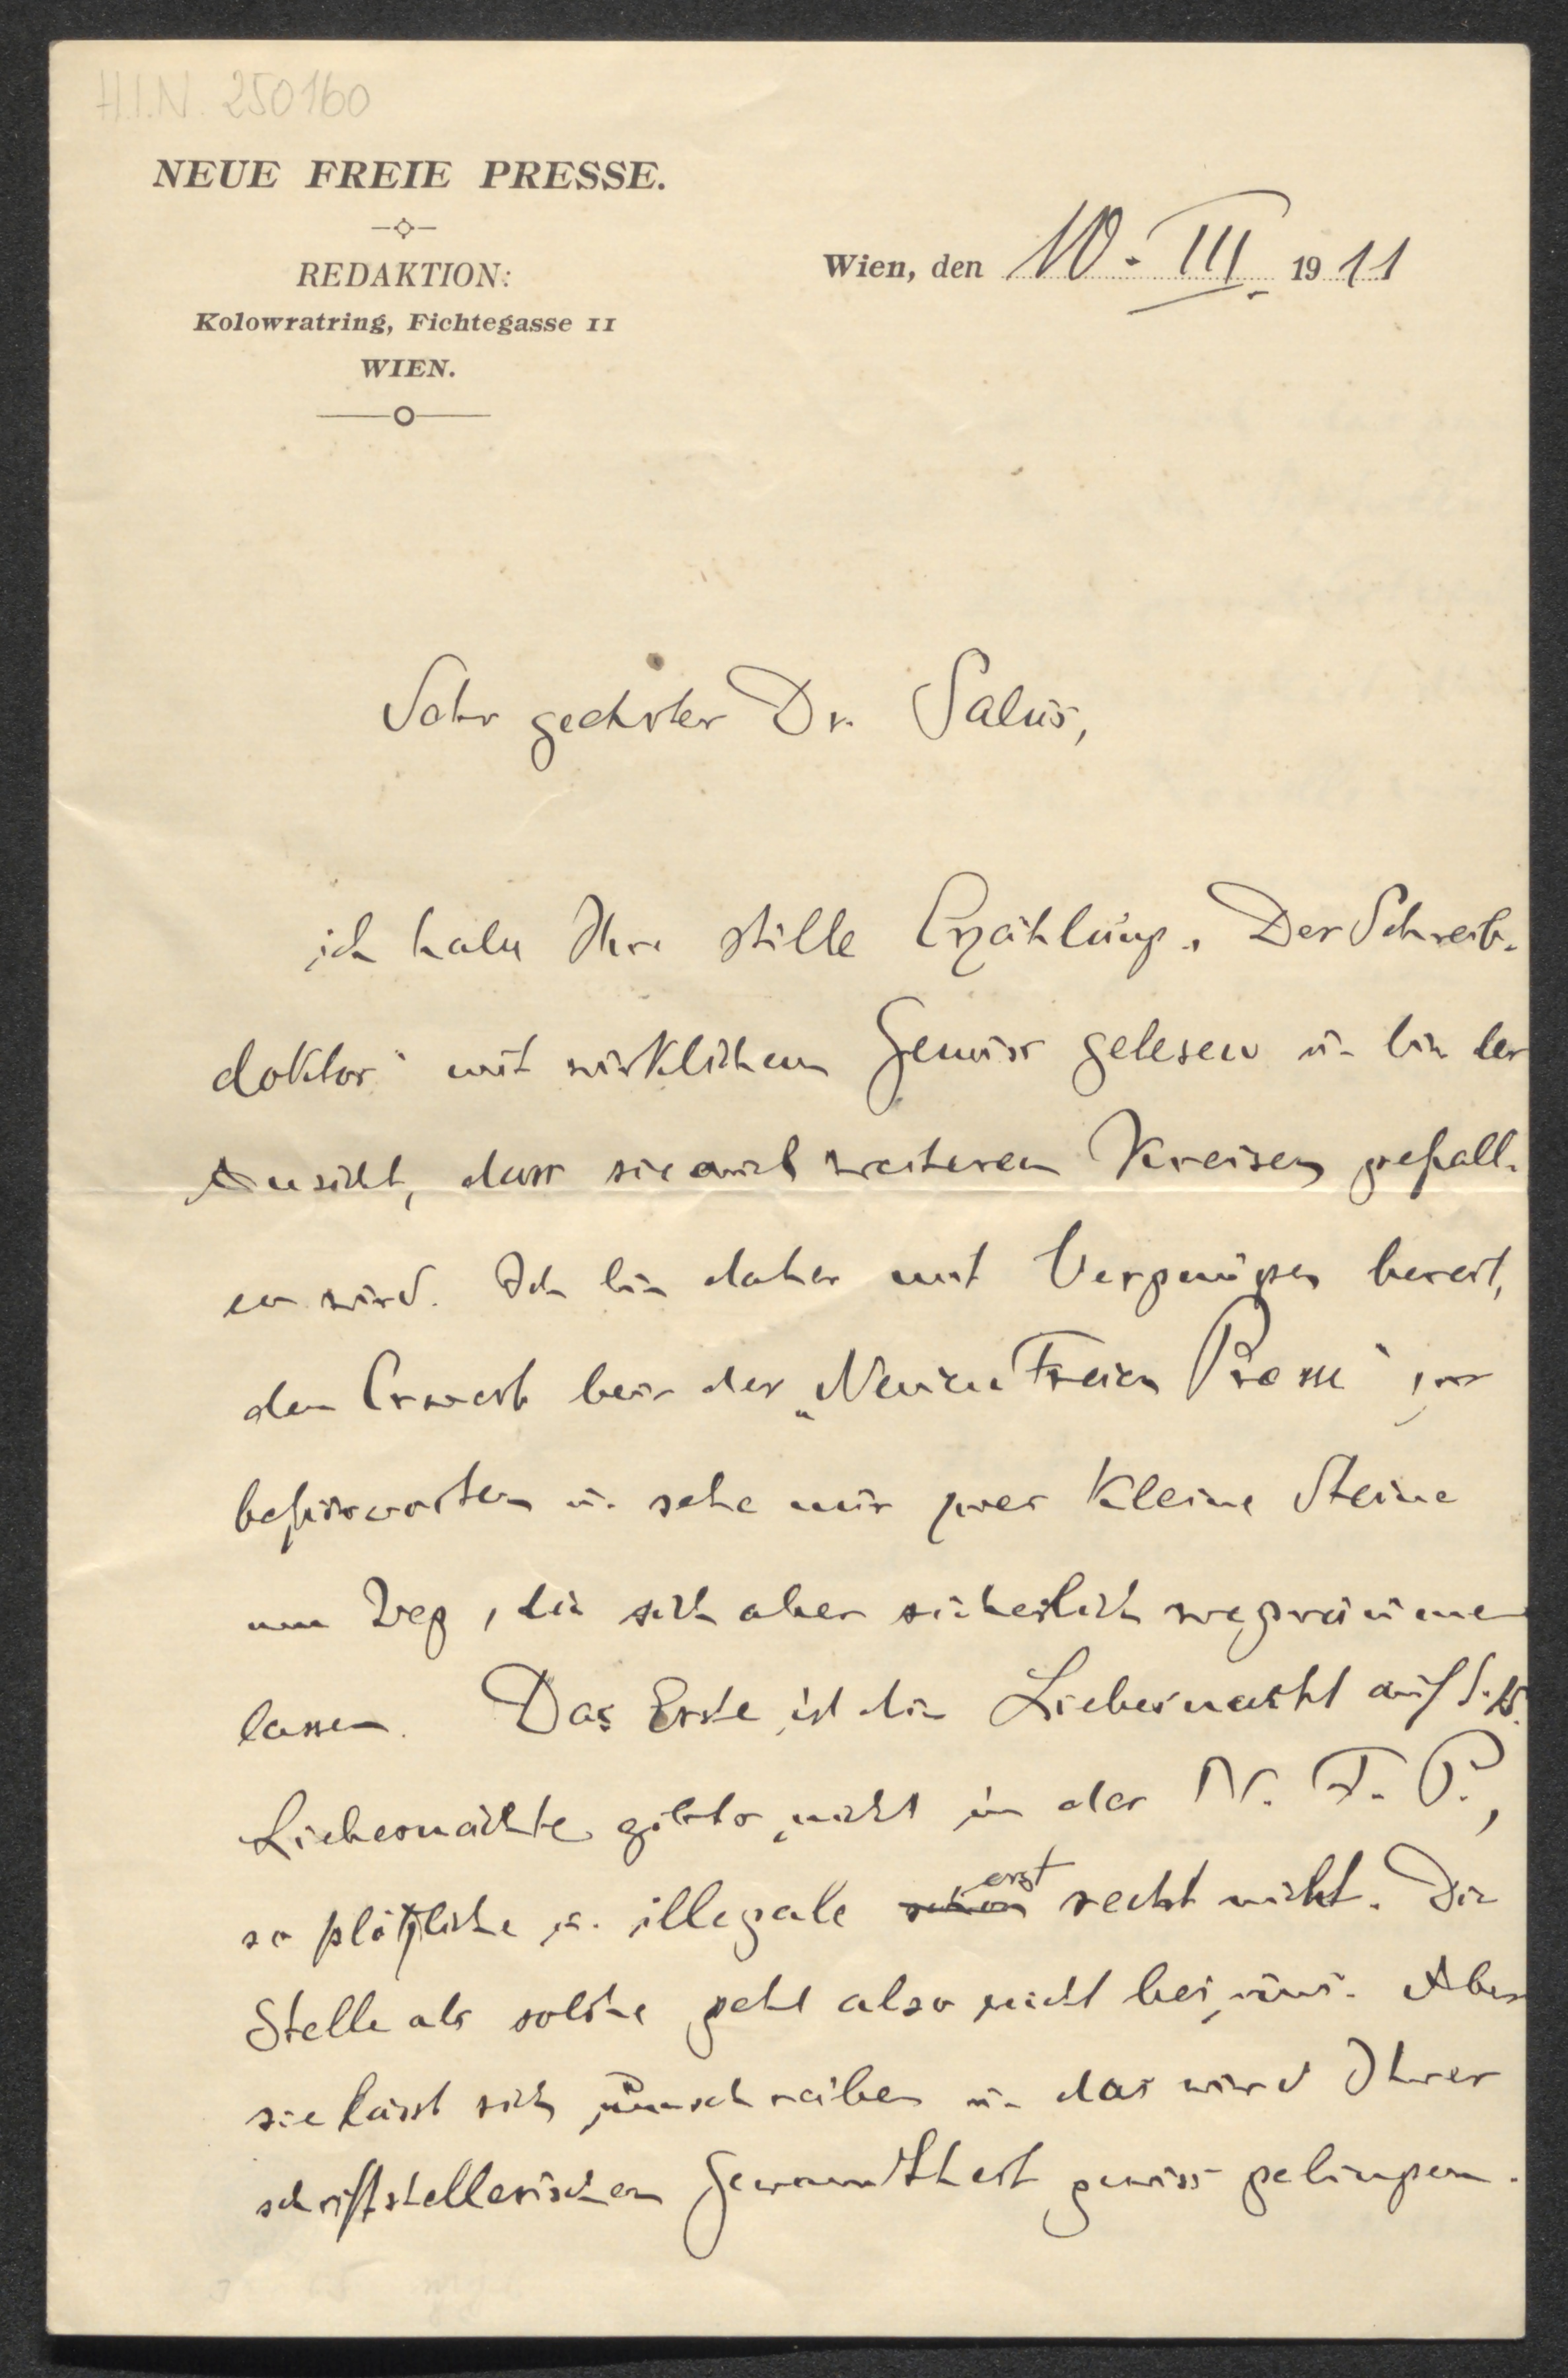 H.I.N. 250160
NEUE FREIE PRESSE.
REDAKTION:
Kolowratring, Fichtegasse 11
WIEN.
Wien, den 10. III. 1911
Sehr geehrter Dr. Salus,
ich habe Ihre stille Erzählung „Der Schreib-
doktor“ mit wirklichem Genuss gelesen u. bin der
Ansicht, dass sie auch weiteren Kreisen gefall-
en wird. Ich bin daher mit Vergnügen bereit,
den Erwerb bei der „Neuen Freien Presse“ zu
befürworten u. sehe nur zwei kleine Steine
am Weg, die sich aber sicherlich wegräumen
lassen. Das Erste ist die Liebesnacht auf S.
Liebesnächte gibt's nicht in der N. F. P.,
so plötzliche u. illegale schon erst recht nicht. Die
Stelle als solche geht also nicht bei uns. Aber
sie lässt sich umschreiben u. das wird Ihrer
schriftstellerischen Gewandtheit gewiss gelingen.